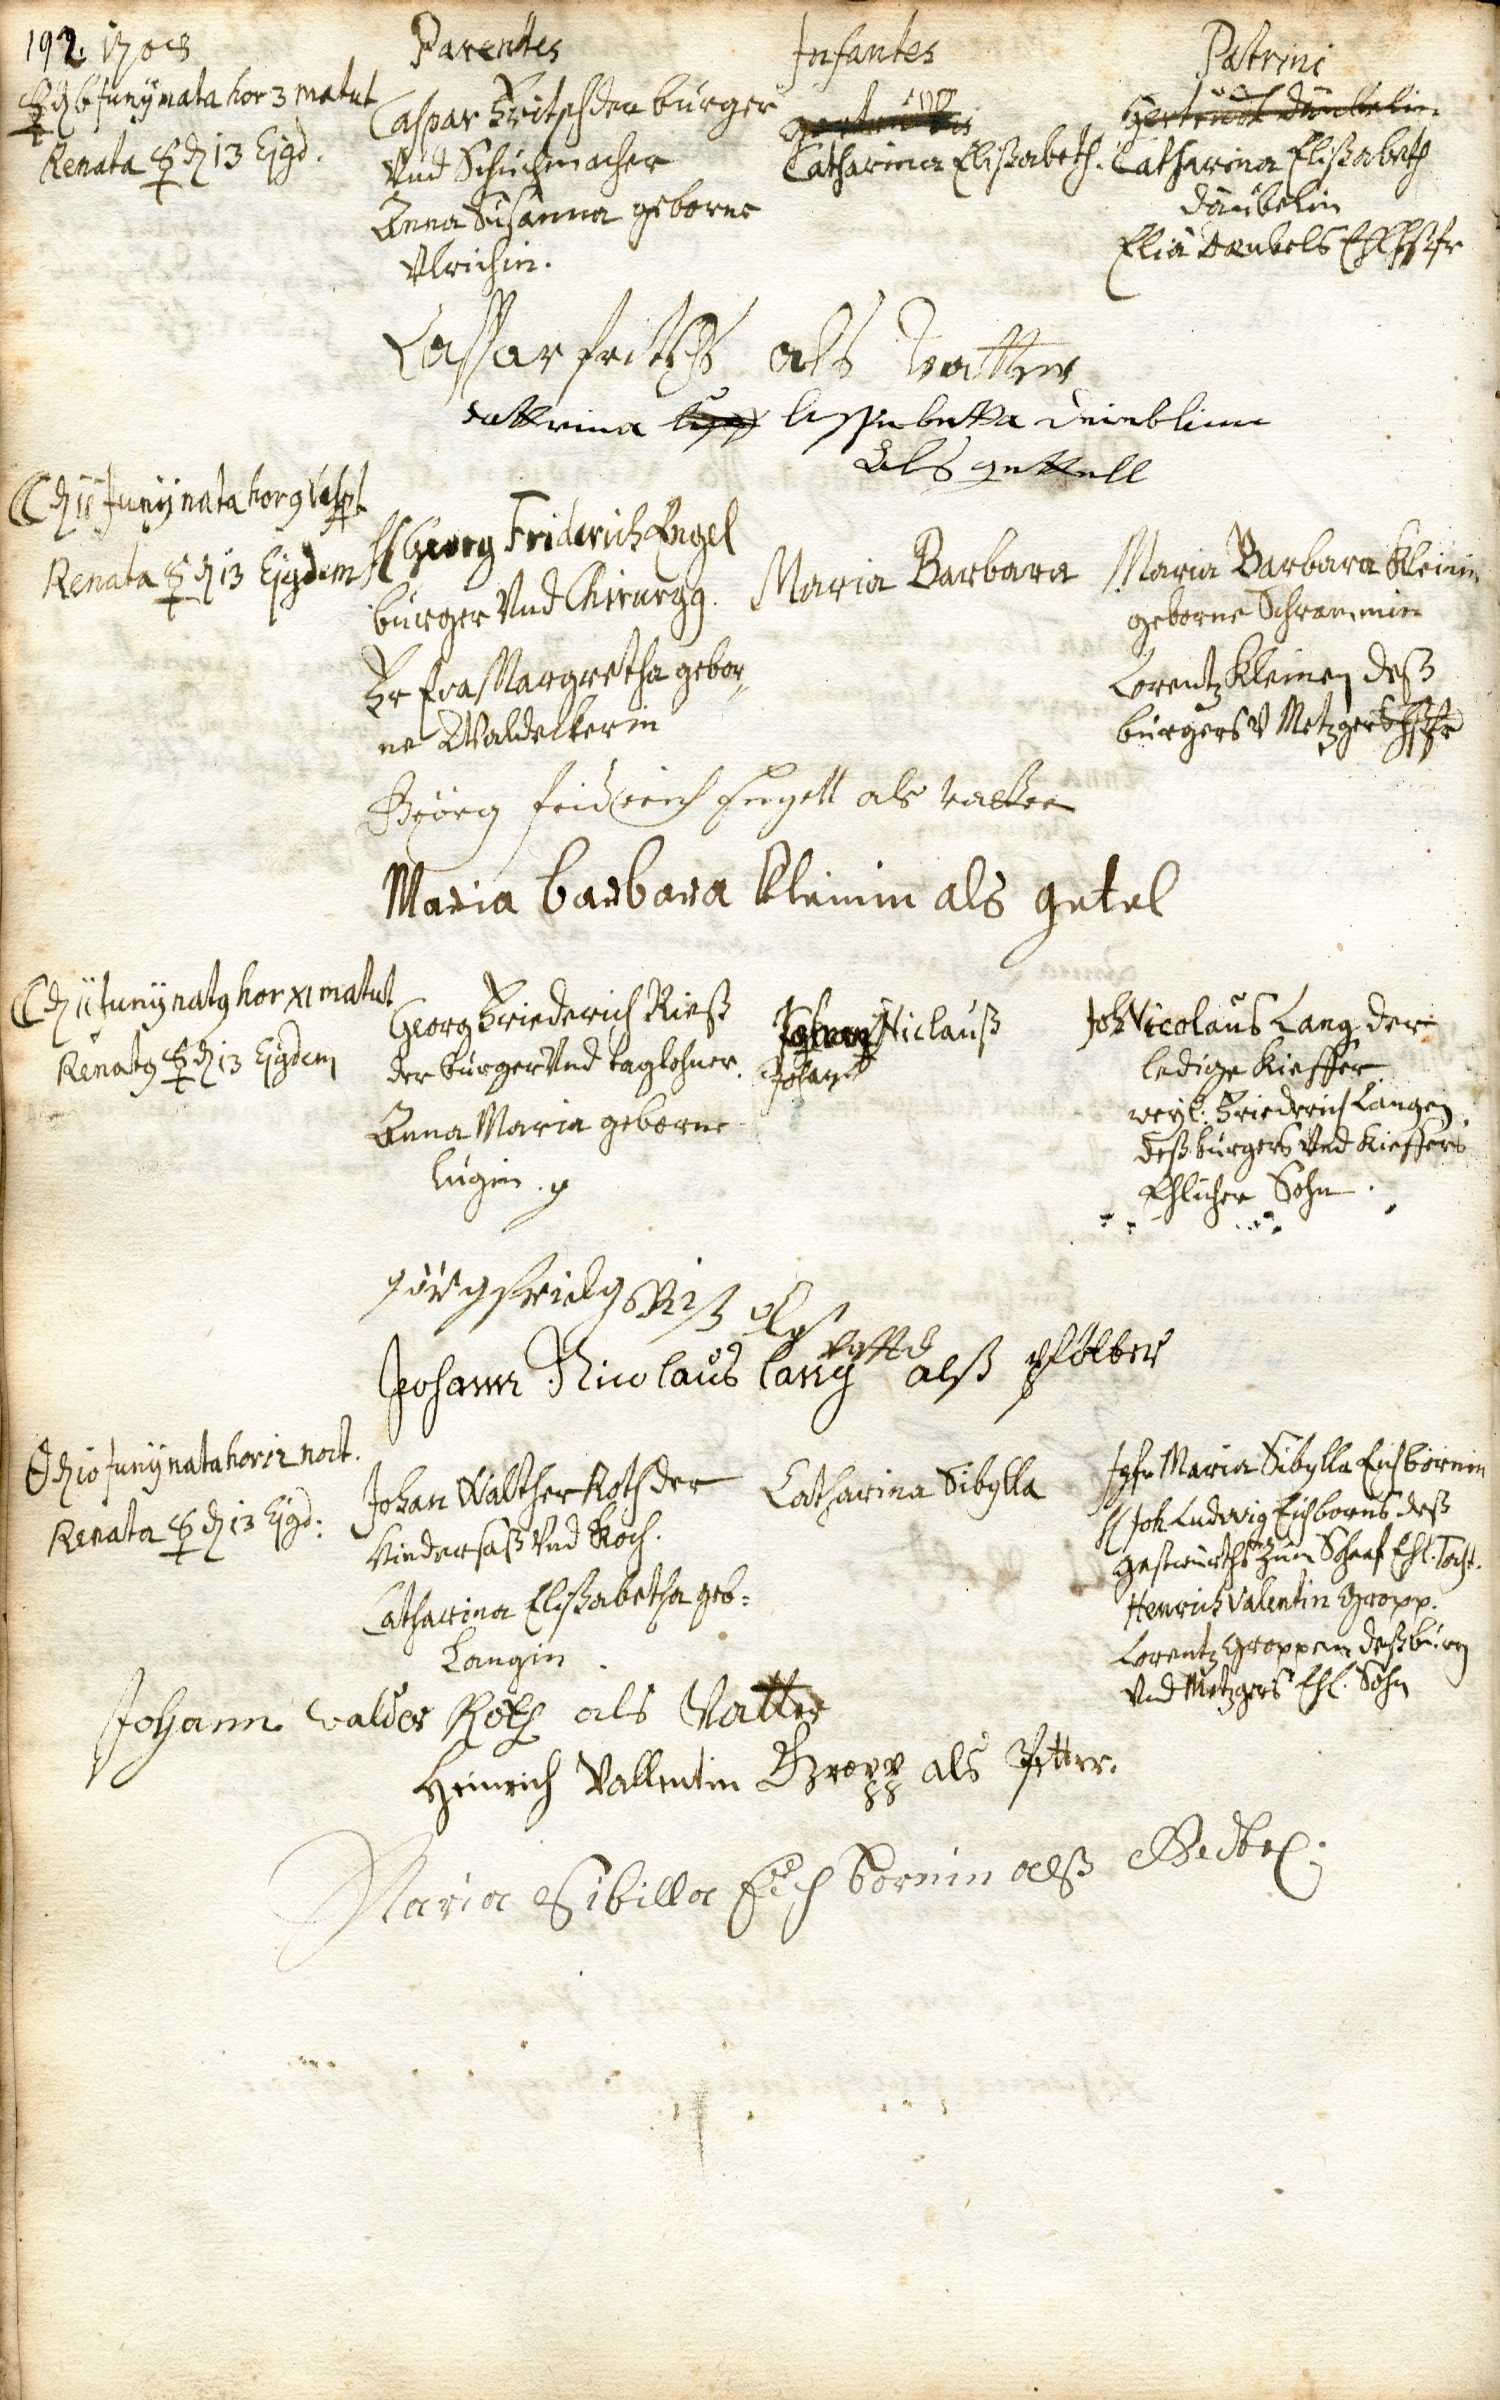 192. 1708
Parentes
Infantes
Patrini
☿ d 6 Junÿ nata hor 3 matut
Renata ☿ d 13 Ejgd.
Caspar Fritsch der burger
Vnd Schuchmacher
Anna Susanna geborne
Vlrichin.
Catharina Elißabeth.
Gertrudt Däubelin
Catharina Elißabeth
Däubelin
Eliä Daubels Ehl
Casbar fritsch als Vatter
lissebetta deieblinn
Als gettell
☾ d 11 Junÿ nata hor 9 Vesp
Renata ☿ d 13 Ejgdem
H Georg Friderich Engel
burger Vnd Chirurg9.
Fr Eva Margretha gebor„
ne Waldeckerin
Maria Barbara
Maria Barbara Kleinin
geborne Schrammin
Lorentz Kleinen deß
burgers V Metzgers
Gjörg fridrich Engell als vatter
Maria barbara Kleinin als getel
☾ d 11 Junÿ nat9 hor XI matut
Renat9 ☿ d 13 Ejgdem
Georg Friederich Rieß
der burger Vnd taglohner.
Anna Maria geborne
Lugin.
Niclauß
Johan
Joh Nicolaus Lang der
ledige Kieffer
weyl. Friederich Langen
deß burgers Vnd Kieffers
Ehlicher Sohn.
jörg friedg Riß als
vatter
Johann Nicolaus lang alß pfötter
d 10 Junÿ nata hor 12 noct.
Renata ☿ d 13 Ejgd:
Johan Walther Roth der
Hindersaß Vnd Koch.
Catharina Elißabetha geb=
Langin.
Catharina Sibylla
Jgfr Maria Sibylla Eichbornin
H Joh Ludwig Eichborns deß
gastwürths zum Schaaf Ehl. Tocht.
Henrich Valentin Gropp.
Lorentz Groppen deß burg
Vnd Metzgers Ehl. Sohn
Johann walder Roth als Vatter
Heinrich Vallentin Gropp als Petter.
Maria Sibilla Eichbornin alß Gedtel.